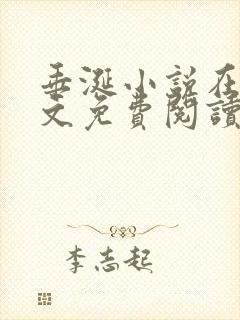 垂涎小说在
文免费阅读
李志起